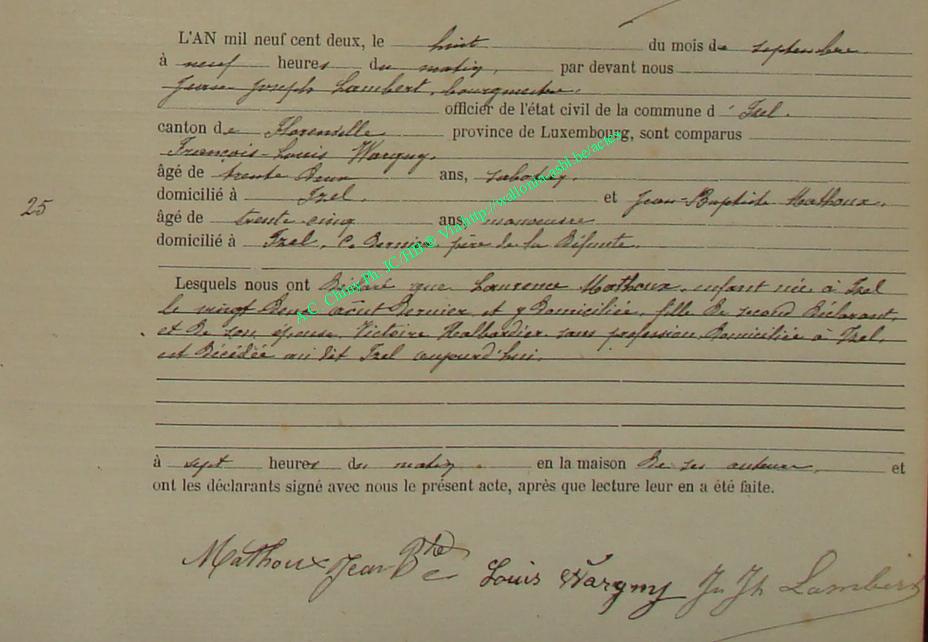 L'AN mil neuf cent deux, le huit du mois de septembre
à neuf heures du matin, par devant nous
Jean-Joseph Lambert, bourgmestre,
officier de l'état civil de la commune d'Izel.
canton de Florenville province de Luxembourg, sont comparus
François-Louis Wargny,
âgé de trente deux ans, sabotier,
domicilié à Izel, et Jean-Baptiste Mathoux,
25
âgé de trente cinq ans manoeuvre
domicilié à Izel, ce dernier père de la défunte.
Lesquels nous ont déclaré que Laurence Mathoux, enfant née à Izel
le vingt deux août dernier et y domiciliée, fille de second déclarant,
et de son épouse Victoire Halbardier, sans profession, domiciliée à Izel,
est décédée au dit Izel aujourd'hui.
à sept heures du matin en la maison de ses auteurs et
ont les déclarants signé avec nous le présent acte, après que lecture leur en a été faite.
Mathoux Jean Bte Louis Wargny Jn Jh Lambert
A.C. Chiny Ph. JC/HB @ Via http://wallonia-asbl.be/actes/